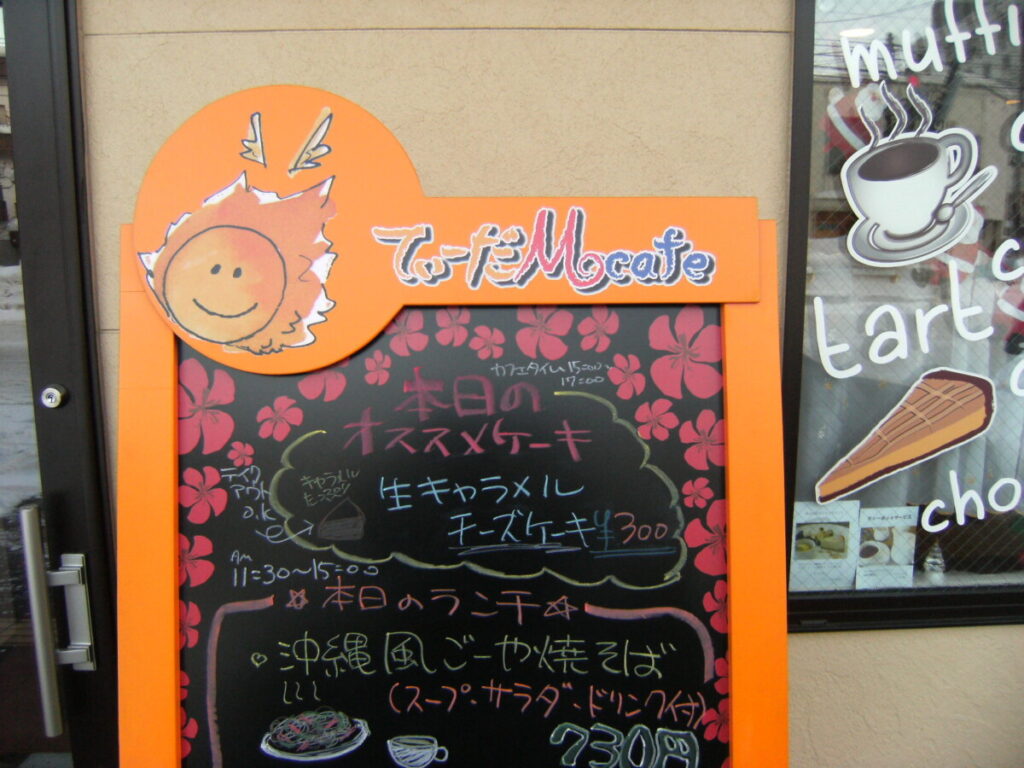 てぃーだMcafe
カフェタイム15:00〜
17:00
本日の
オススメケーキ
テイク
アウト
o.k
キャラメル
生キャラメル
チーズケーキ ¥300
Am
11:30〜15:00
☆本日のランチ☆
沖縄風ごーや焼そば
(スープ・サラダ・ドリンク付)
730円
muffi
tart
cho